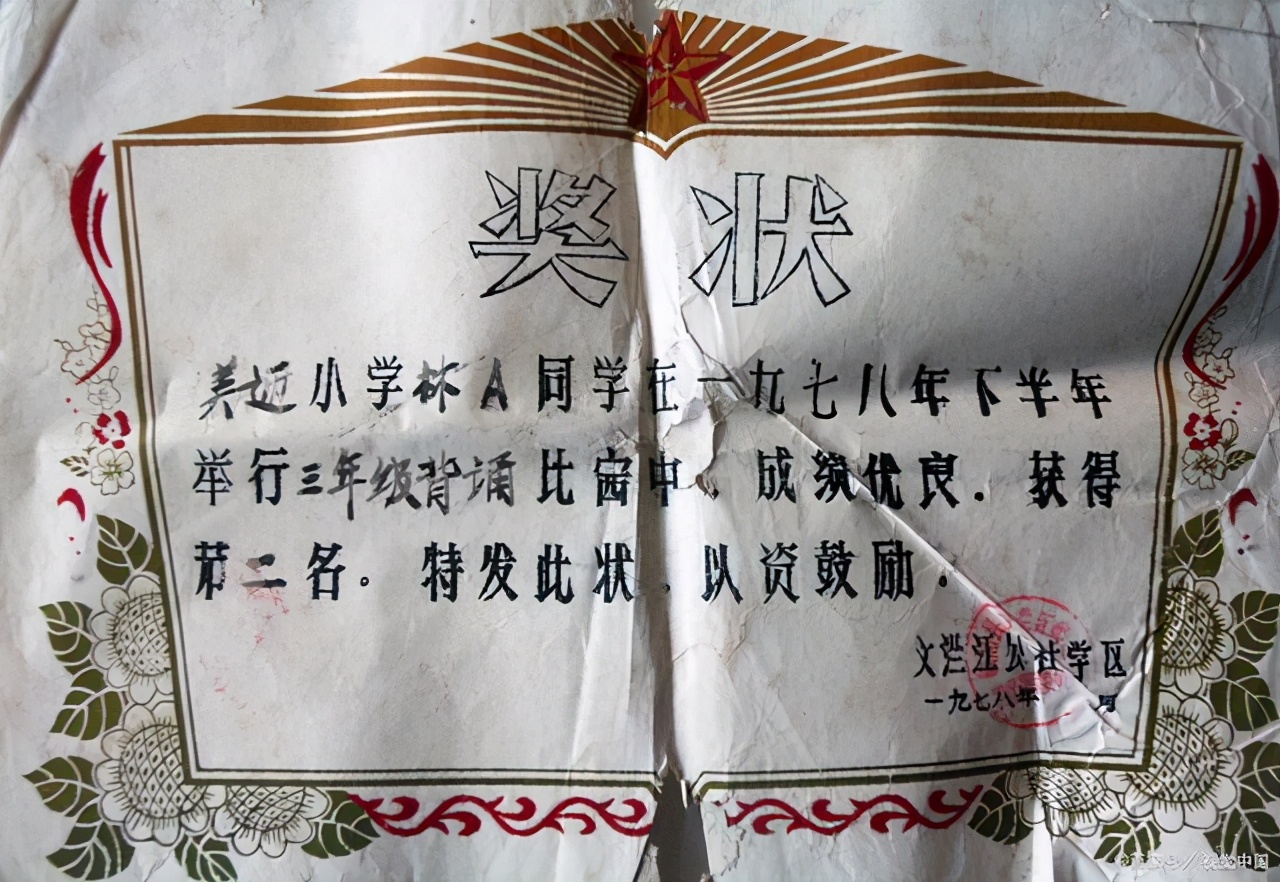 奖状
小学林A同学在一九七八年下半年
举行三年级背诵比赛中.成绩优良.获得
第二名。特发此状.以资鼓励.
江公社学区
一九七八年 月
中国